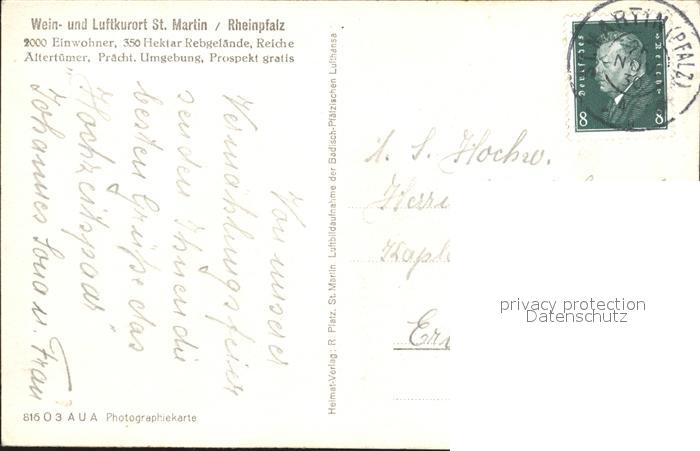 Wein- und Luftkurort St. Martin / Rheinpfalz
2000 Einwohner, 350 Hektar Rebgelände, Reiche
Altertümer, Prächt. Umgebung, Prospekt gratis
Von unserer
Vermählungsfeier
senden Ihnen die
besten Grüße das
"Hochzeitspaar"
Johannes u. Frau
816 O 3 A U A Photographiekarte
Heimat-Verlag: R. Platz, St. Martin Luftbildaufnahme der Badisch-Pfälzischen Lufthansa
MARTIN (PFALZ)
Deutsches Reich
8 8
S. Hochw.
Herrn
Kapl
privacy protection
Datenschutz